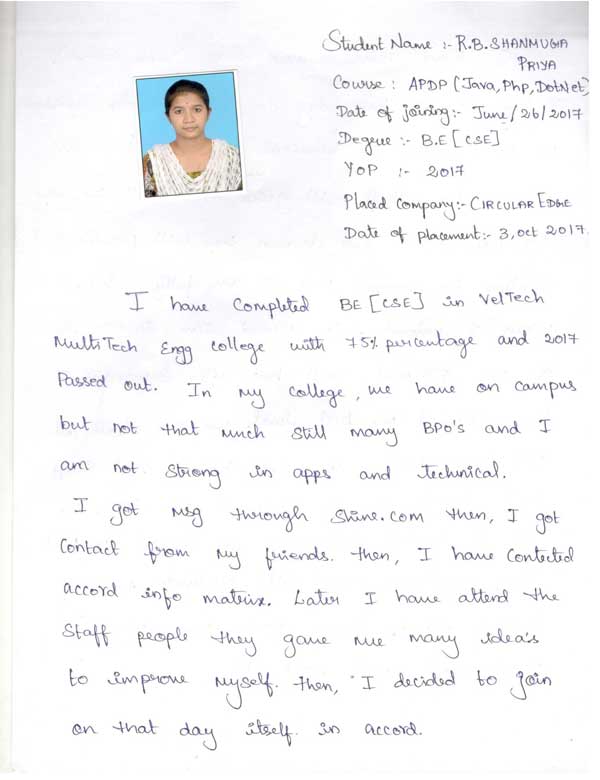 Student Name :- R.B.SHANMUGA
PRIYA
Course : APDP (Java, Php, DotNet)
Date of joining:- June/26/2017
Degree :- B.E [CSE]
YOP :- 2017
Placed Company:- CIRCULAR EDGE
Date of placement:- 3, oct 2017.
I have Completed BE [CSE] in VelTech
MultiTech Engg college with 75% percentage and 2017
Passed out. In my college, we have on campus
but not that much still many BPO's and I
am not strong in apps and technical.
I got msg through Shine.com then, I got
Contact from my friends. then, I have Contected
accord info matrix. Later I have attend the
Staff people they gave me many idea's
to improve myself. then, I decided to join
on that day itself. in accord.